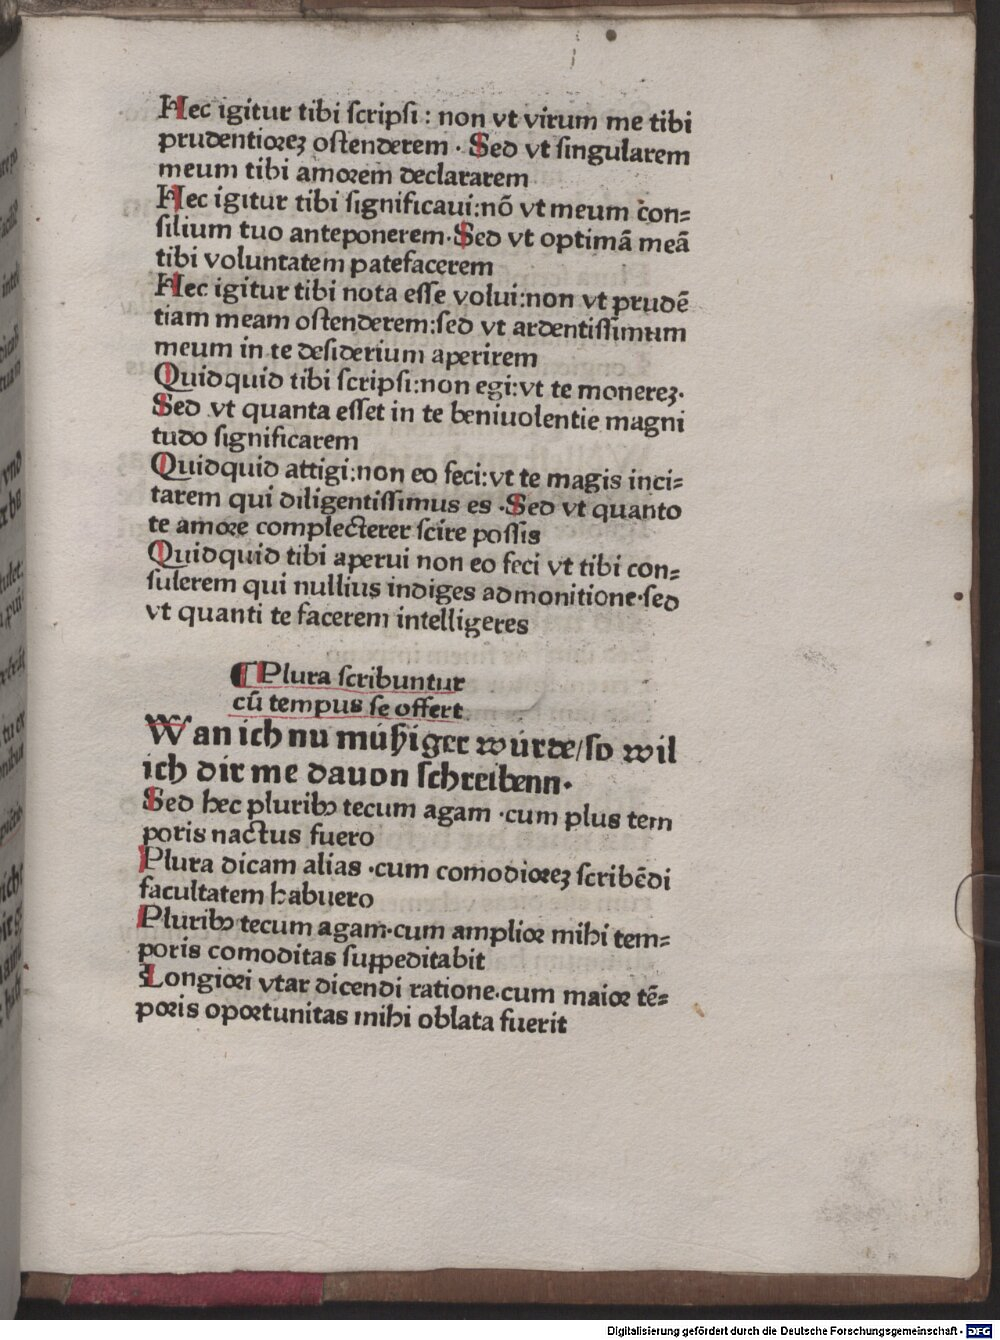 Hec igitur tibi scripsi : non vt virum me tibi
prudentiorez ostenderem · Sed vt singularem
meum tibi amorem declararem
Hec igitur tibi significaui:nō vt meum con=
silium tuo anteponerem·Sed vt optimā meā
tibi voluntatem patefacerem
Hec igitur tibi nota esse volui:non vt prudē
tiam meam ostenderem:sed vt ardentissimum
meum in te desiderium aperirem
Quidquid tibi scripsi:non egi:vt te monerez·
Sed vt quanta esset in te beniuolentie magni
tudo significarem
Quidquid attigi:non eo feci:vt te magis inci=
tarem qui diligentissimus es ·Sed vt quanto
te amore complecterer scire possis
Quidquid tibi aperui non eo feci vt tibi con=
sulerem qui nullius indiges admonitione·sed
vt quanti te facerem intelligeres
¶ Plura scribuntur
cū tempus se offert
Wan ich nu müßiger würde/so wil
ich dir me dauon schreibenn·
Sed hec pluribꝫ tecum agam ·cum plus tem
poris nactus fuero
Plura dicam alias ·cum comodiorez scribēdi
facultatem habuero
Pluribꝫ tecum agam·cum amplior mihi tem=
poris comoditas suppeditabit
Longiori vtar dicendi ratione·cum maior tē=
poris oportunitas mihi oblata fuerit
Digitalisierung gefördert durch die Deutsche Forschungsgemeinschaft - DFG